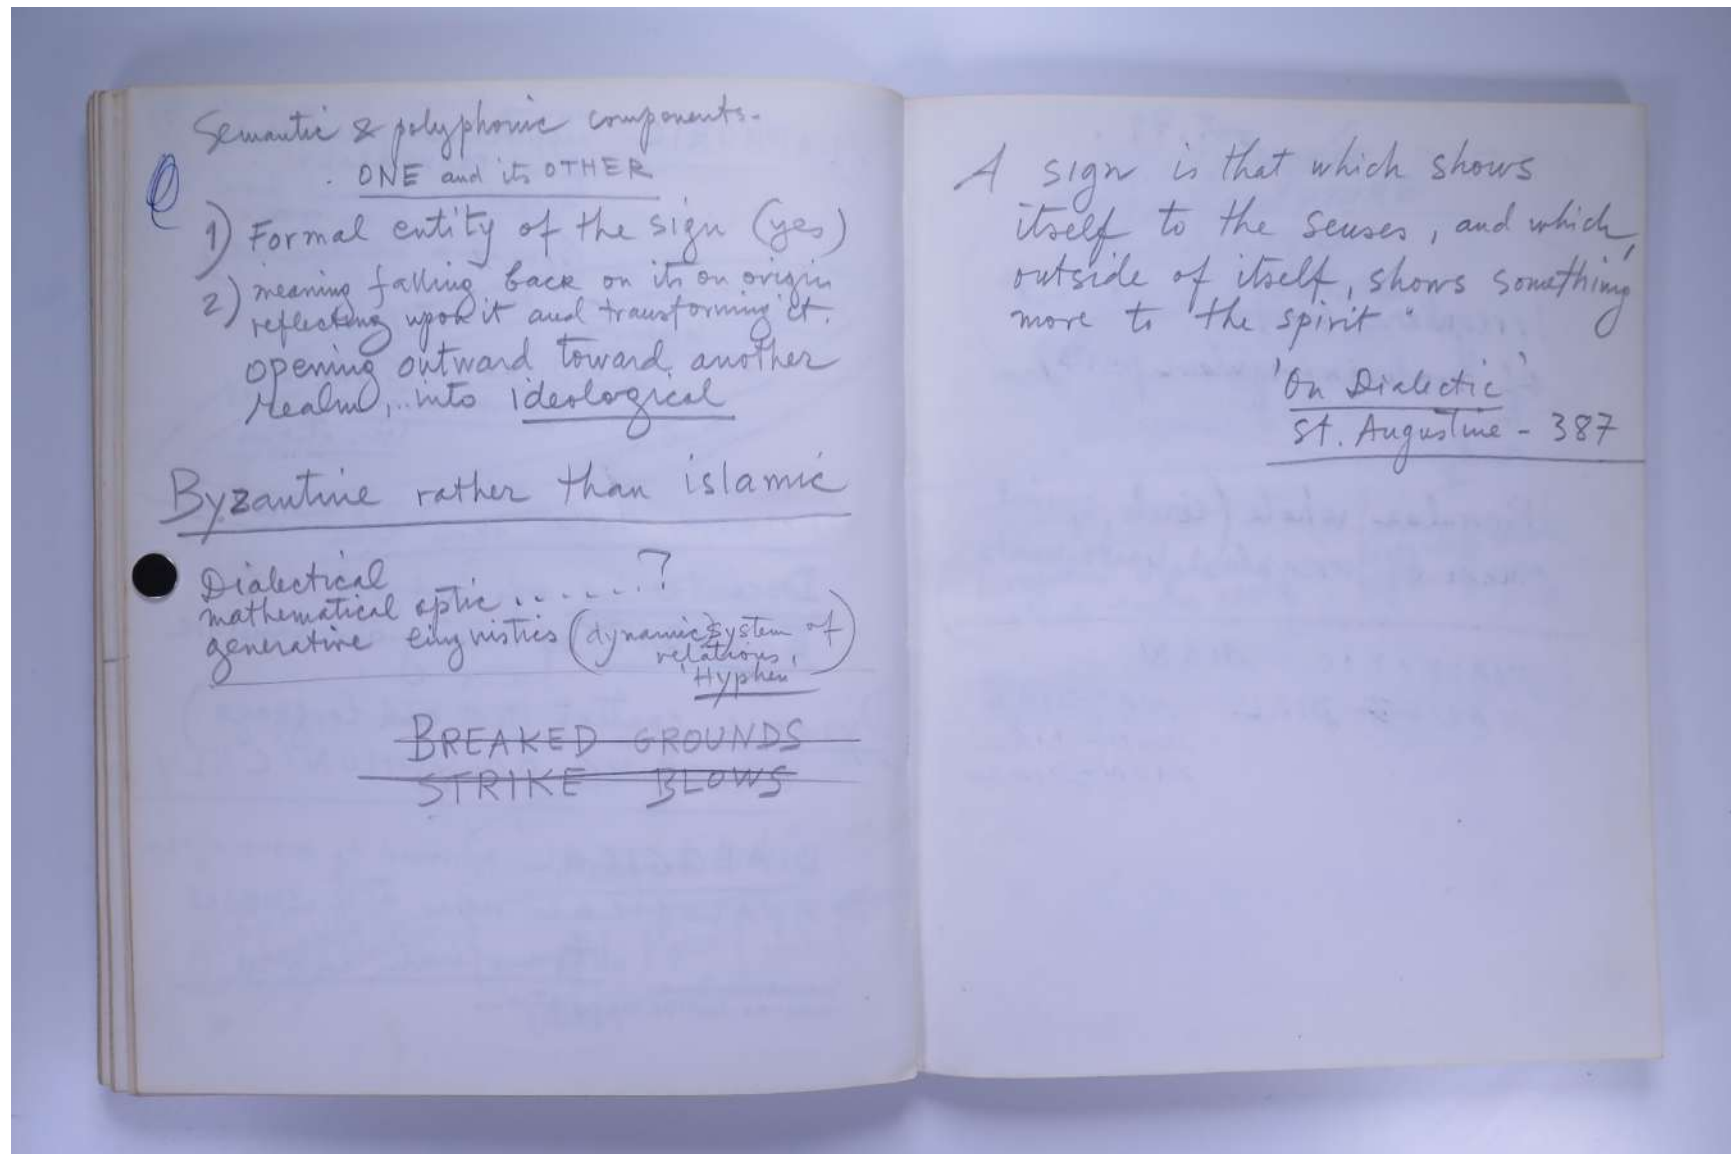 Semantic & polyphonic components.
ONE and its OTHER
1) Formal entity of the sign (yes)
2) meaning falling back on its on origin
reflecting upon it and transforming it.
opening outward toward another
realm, .. into ideological
Byzantine rather than islamic
Dialectical
mathematical optic ......?
generative linguistics (dynamic system of
relations,
'Hyphen'
BREAKED GROUNDS
STRIKE BLOWS
A sign is that which shows
itself to the senses, and which,
outside of itself, shows something
more to the spirit"
'On Dialectic'
St. Augustine - 387